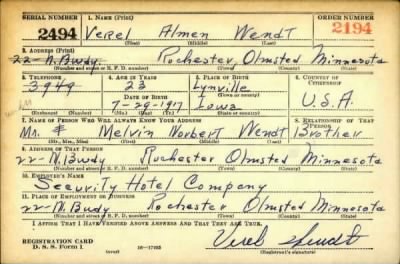 SERIAL NUMBER 1. NAME (Print) ORDER NUMBER
2494 Verel Almen Wendt 2194
(First) (Middle) (Last)
2. ADDRESS (Print)
22-N. Bwdy. Rochester, Olmsted Minnesota
(Number and street or R. F. D. number) (Town) (County) (State)
3. TELEPHONE 4. AGE IN YEARS 5. PLACE OF BIRTH 6. COUNTRY OF CITIZENSHIP
3949 23 Lynville
DATE OF BIRTH
7-29-1917 Iowa U.S.A.
(Exchange) (Number) (Mo.) (Day) (Yr.) (State or country)
7. NAME OF PERSON WHO WILL ALWAYS KNOW YOUR ADDRESS 8. RELATIONSHIP OF THAT PERSON
Mr. # Melvin Norbert Wendt Brother
(Mr., Mrs., Miss) (First) (Middle) (Last)
9. ADDRESS OF THAT PERSON
22-N. Bwdy Rochester Olmsted Minnesota
(Number and street or R. F. D. number) (Town) (County) (State)
10. EMPLOYER'S NAME
Security Hotel Company
11. PLACE OF EMPLOYMENT OR BUSINESS
22-N. Bwdy Rochester Olmsted Minnesota
(Number and street or R. F. D. number) (Town) (County) (State)
I AFFIRM THAT I HAVE VERIFIED ABOVE ANSWERS AND THAT THEY ARE TRUE.
REGISTRATION CARD
D. S. S. Form 1 (over) 16-17105 Verel Wendt
(Registrant's signature)